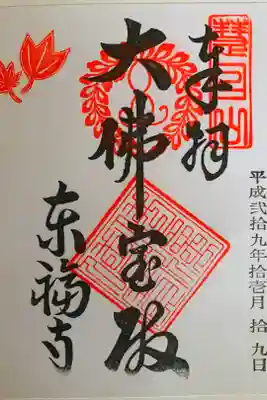 平成弐拾九年拾壱月拾九日
奉拝
大佛宝殿
东福寺